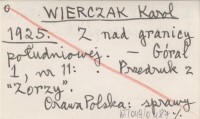 WIERCZAK Karol
1925. Z nad granicy
południowej. — Góral
1, nr 11: . Przedruk z
"Zorzy".
Orawa Polska: sprawy